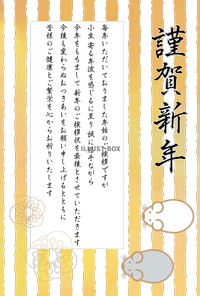 謹賀新年
毎年いただいておりました年始のご挨拶ですが
小生寄る年波を感じるに至り 誠に勝手ながら
今年をもちまして新年のご挨拶状を最後とさせていただきます
今後も変わらぬおつきあいをお願い申し上げるとともに
皆様のご健康とご繁栄を心からお祈りいたします
ILLUST BOX